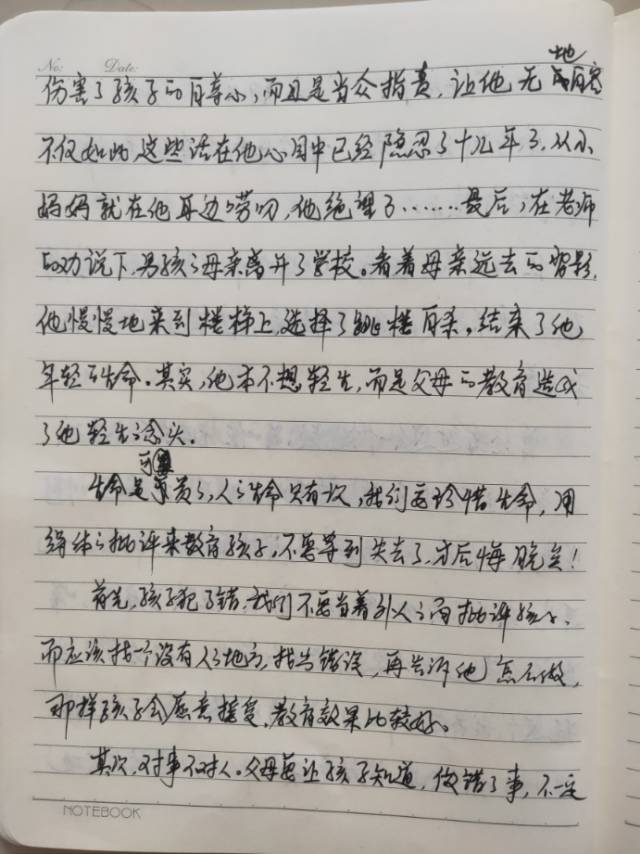 No:
Date:
伤害了孩子的自尊心,而且是当众指责,让他无地自容
不仅如此,这些话在他心目中已经隐忍了十几年了,从小
妈妈就在他耳边唠叨,他绝望了.......最后,在老师
的劝说下,男孩的母亲离开了学校。看着母亲远去的背影,
他慢慢地来到楼梯上,选择了跳楼自杀。结束了他
年轻的生命。其实,他本不想轻生,而是父母的教育造成
了他轻生的念头。
生命是可贵的,人的生命只有一次,我们要珍惜生命,用
得体的批评来教育孩子,不要等到失去了,才后悔晚矣!
首先,孩子犯了错,我们不要当着外人的面批评孩子、
而应该找个没有人的地方,指出错误,再告诉他怎么做,
那样孩子会愿意接受,教育效果比较好。
其次,对事不对人。父母要让孩子知道,做错了事,不一定
NOTEBOOK